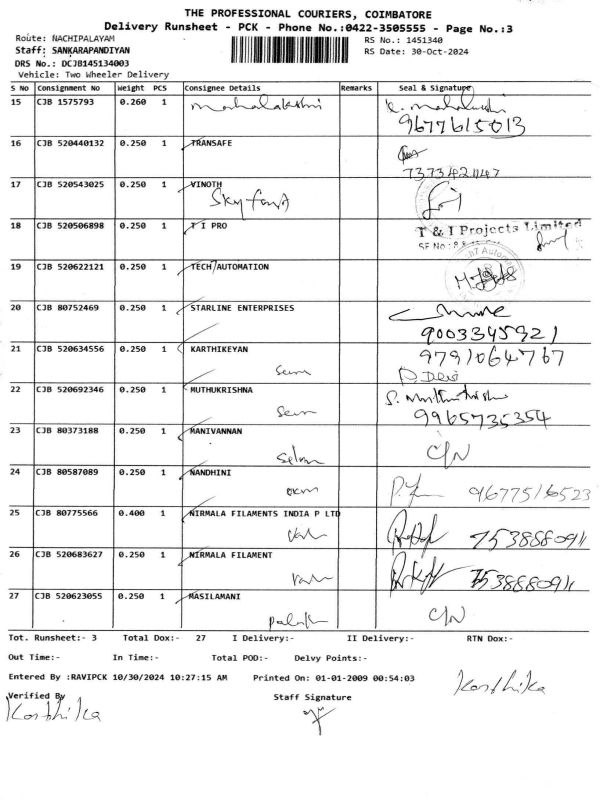 THE PROFESSIONAL COURIERS, COIMBATORE
Delivery Runsheet - PCK - Phone No.:0422-3505555 - Page No.:3
Route: NACHIPALAYAM RS No.: 1451340
Staff: SANKARAPANDIYAN RS Date: 30-Oct-2024
DRS No.: DCJB145134003
Vehicle: Two Wheeler Delivery
S No Consignment No Weight PCS Consignee Details Remarks Seal & Signature
15 CJB 1575793 0.260 1 Mahalakshmi
9677615013
16 CJB 520440132 0.250 1 TRANSAFE
17 CJB 520543025 0.250 1 VINOTH
18 CJB 520506898 0.250 1 T I PRO T & I Projects Limited
19 CJB 520622121 0.250 1 TECH AUTOMATION
20 CJB 80752469 0.250 1 STARLINE ENTERPRISES
9003345921
21 CJB 520634556 0.250 1 KARTHIKEYAN 9791064767
P. Devi
22 CJB 520692346 0.250 1 MUTHUKRISHNA
9965735354
23 CJB 80373188 0.250 1 MANIVANNAN C/N
24 CJB 80587089 0.250 1 NANDHINI 9677516523
25 CJB 80775566 0.400 1 NIRMALA FILAMENTS INDIA P LTD 7538880911
26 CJB 520683627 0.250 1 NIRMALA FILAMENT 7538880911
27 CJB 520623055 0.250 1 MASILAMANI C/N
Tot. Runsheet:- 3 Total Dox:- 27 I Delivery:- II Delivery:- RTN Dox:-
Out Time:- In Time:- Total POD:- Delvy Points:-
Entered By :RAVIPCK 10/30/2024 10:27:15 AM Printed On: 01-01-2009 00:54:03 Karthika
Verified By Staff Signature
Karthika